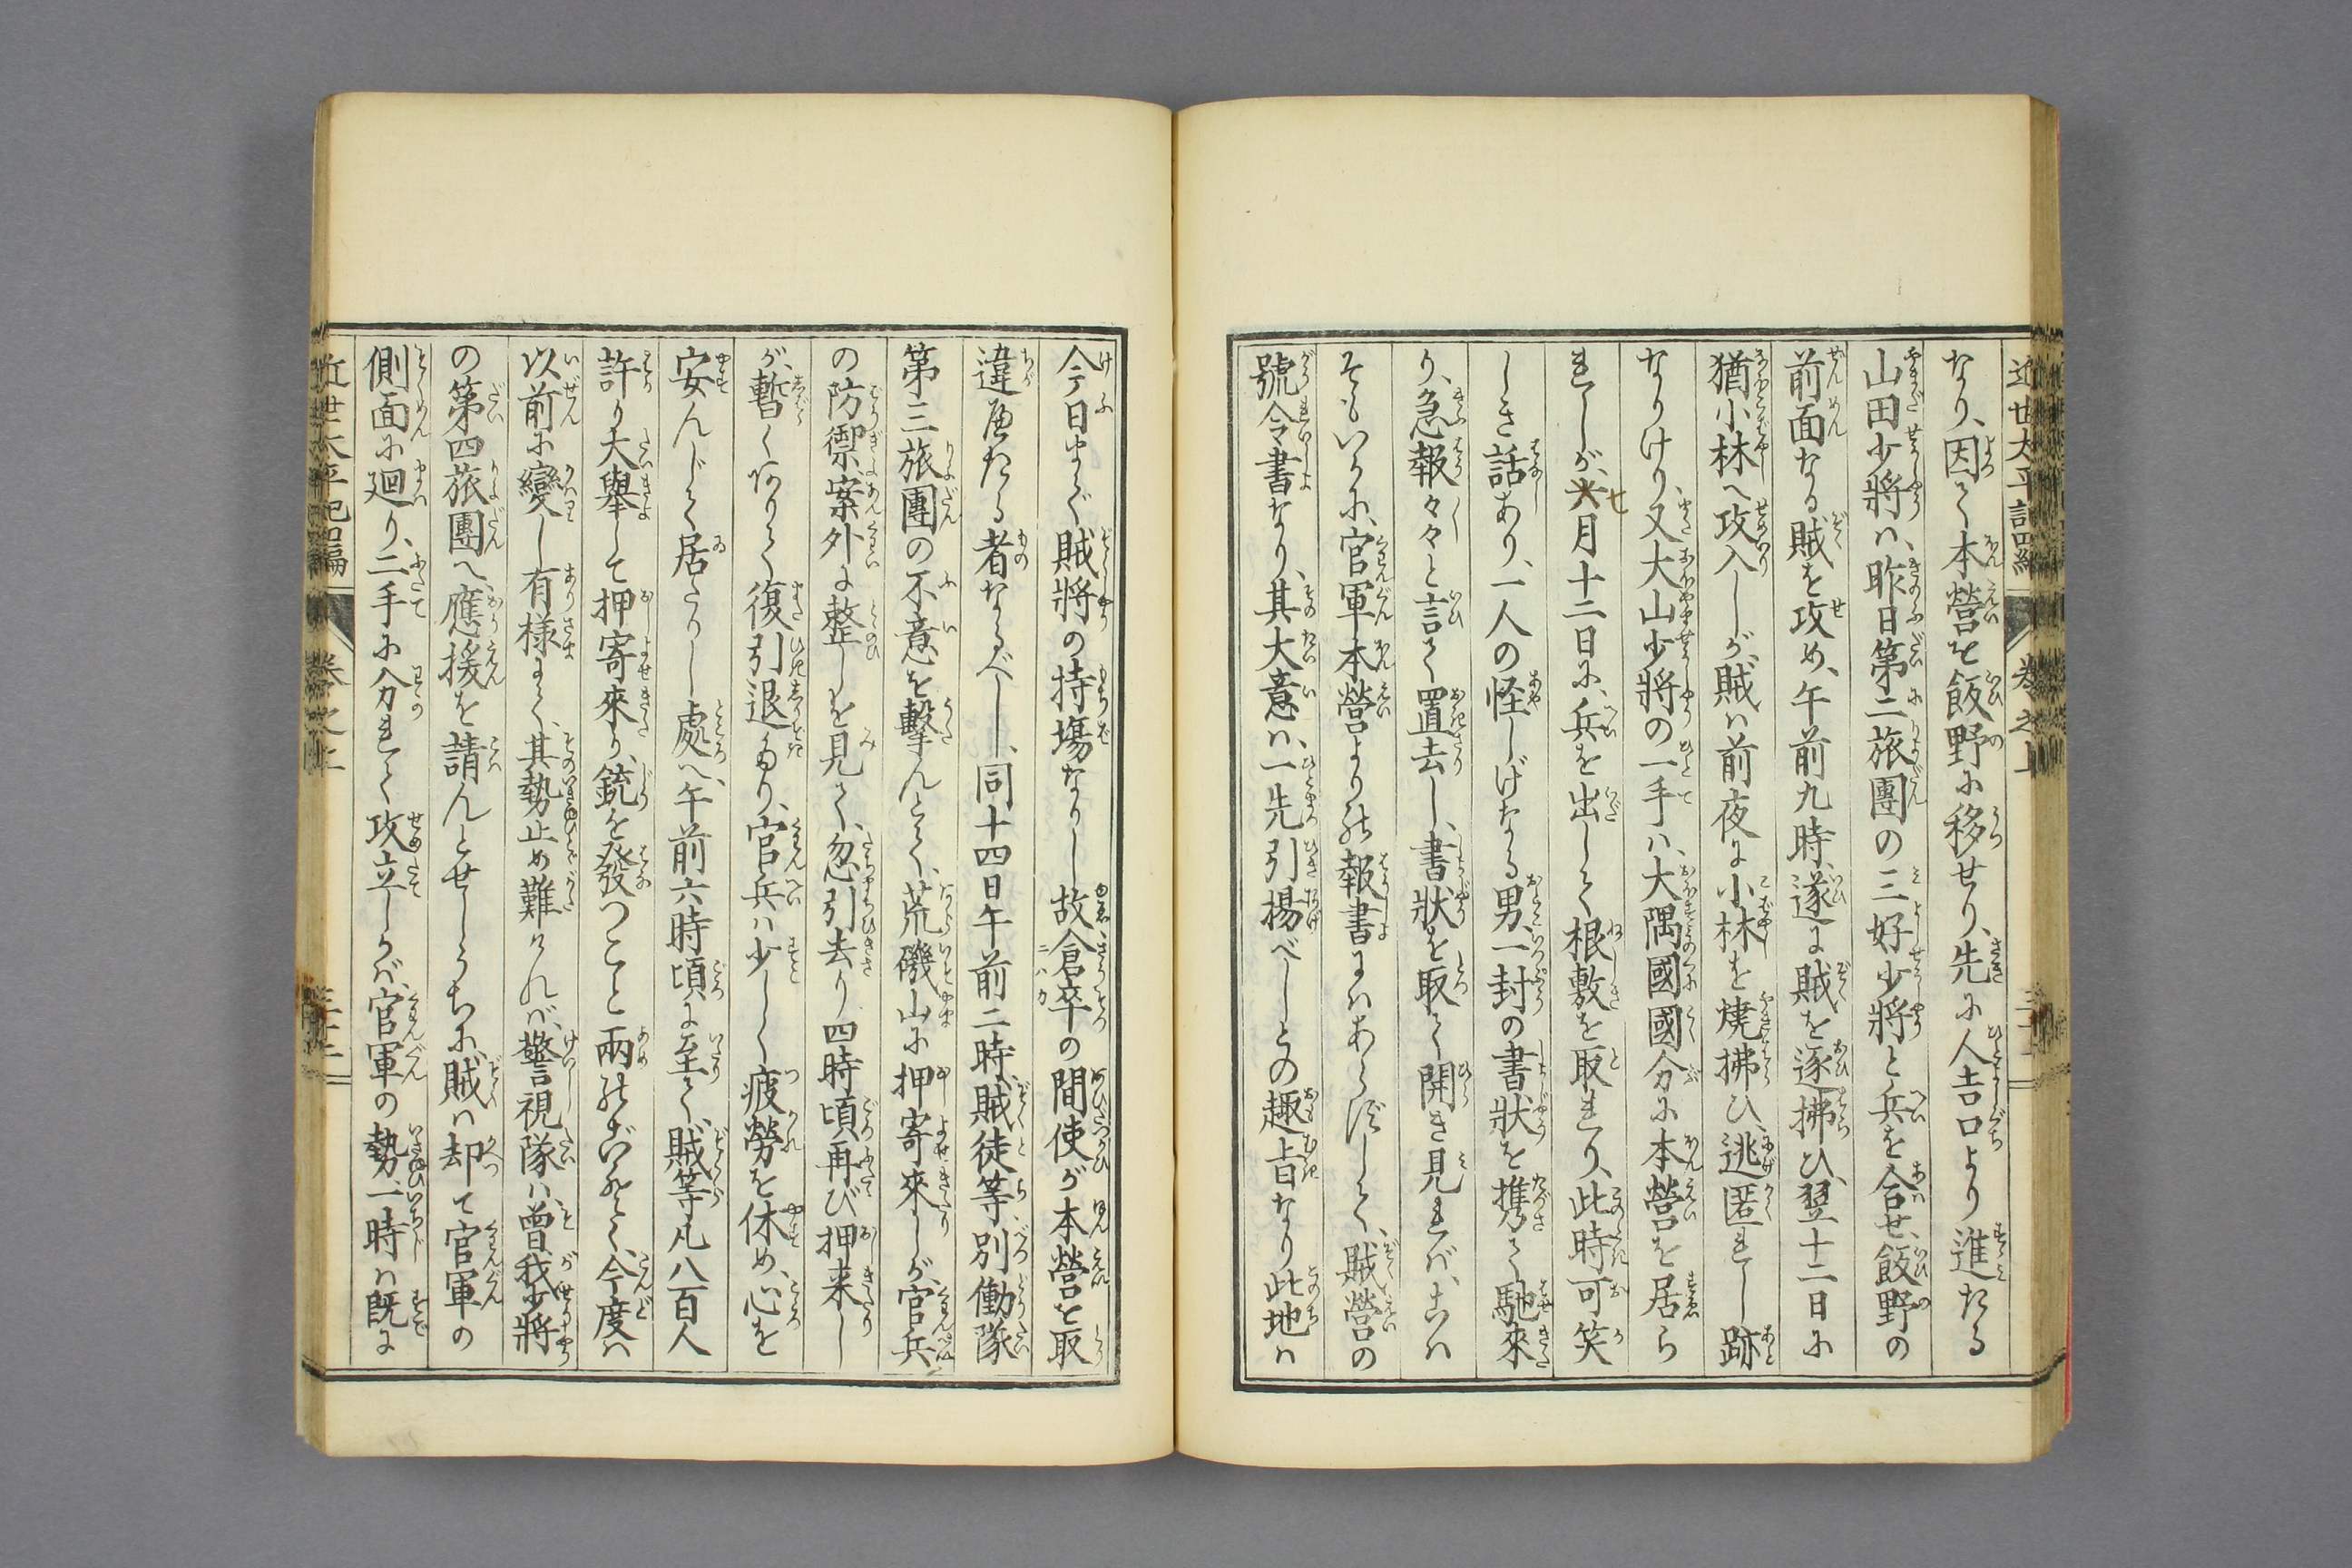 近世太平記四編 卷之上
なり、因て本營を飯野に移せり、先に人吉口より進たる
山田少將ハ、昨日第二旅團の三好少將と兵を合せ、飯野の
前面なる賊を攻め、午前九時、遂に賊を逐拂ひ、翌十一日に
猶小林へ攻入しが、賊ハ前夜に小林を燒拂ひ、逃匿れし跡
なりけり、又大山少將の一手ハ、大隅國國分に本營を居ら
れしが、七月十二日に、兵を出して根敷を取れり、此時可笑
しき話あり、一人の怪しげなる男、一封の書狀を携て馳來
り、急報々々と言て置去し、書狀を取て開き見れバ、こハ
そもいかに、官軍本營よりの報書にハあらずして、賊營の
號令書なり、其大意ハ、一先引揚べしとの趣旨なり此地ハ
今日まで賊將の持塲なりし故、倉卒の間使が本營を取
違へたる者なるべし、同十四日午前二時、賊徒等別働隊
第三旅團の不意を擊んとて、荒磯山に押寄來しが、官兵
の防禦、案外に整しを見て、忽引去り四時頃再び押来し
が、暫くありて復引退たり、官兵ハ少しく疲勞を休め、心を
安んじて居たりし處へ、午前六時頃に至て、賊等凡八百人
許り大擧して押寄來り、銃を發つこと雨のごとく、今度ハ
以前に變し有様にて、其勢止め難けれバ、警視隊ハ、曾我少將
の第四旅團へ應援を請んとせしうちに、賊ハ却て官軍の
側面に廻り、二手に分れて攻立しかバ、官軍の勢一時ハ既に
近世太平記四編 卷之上